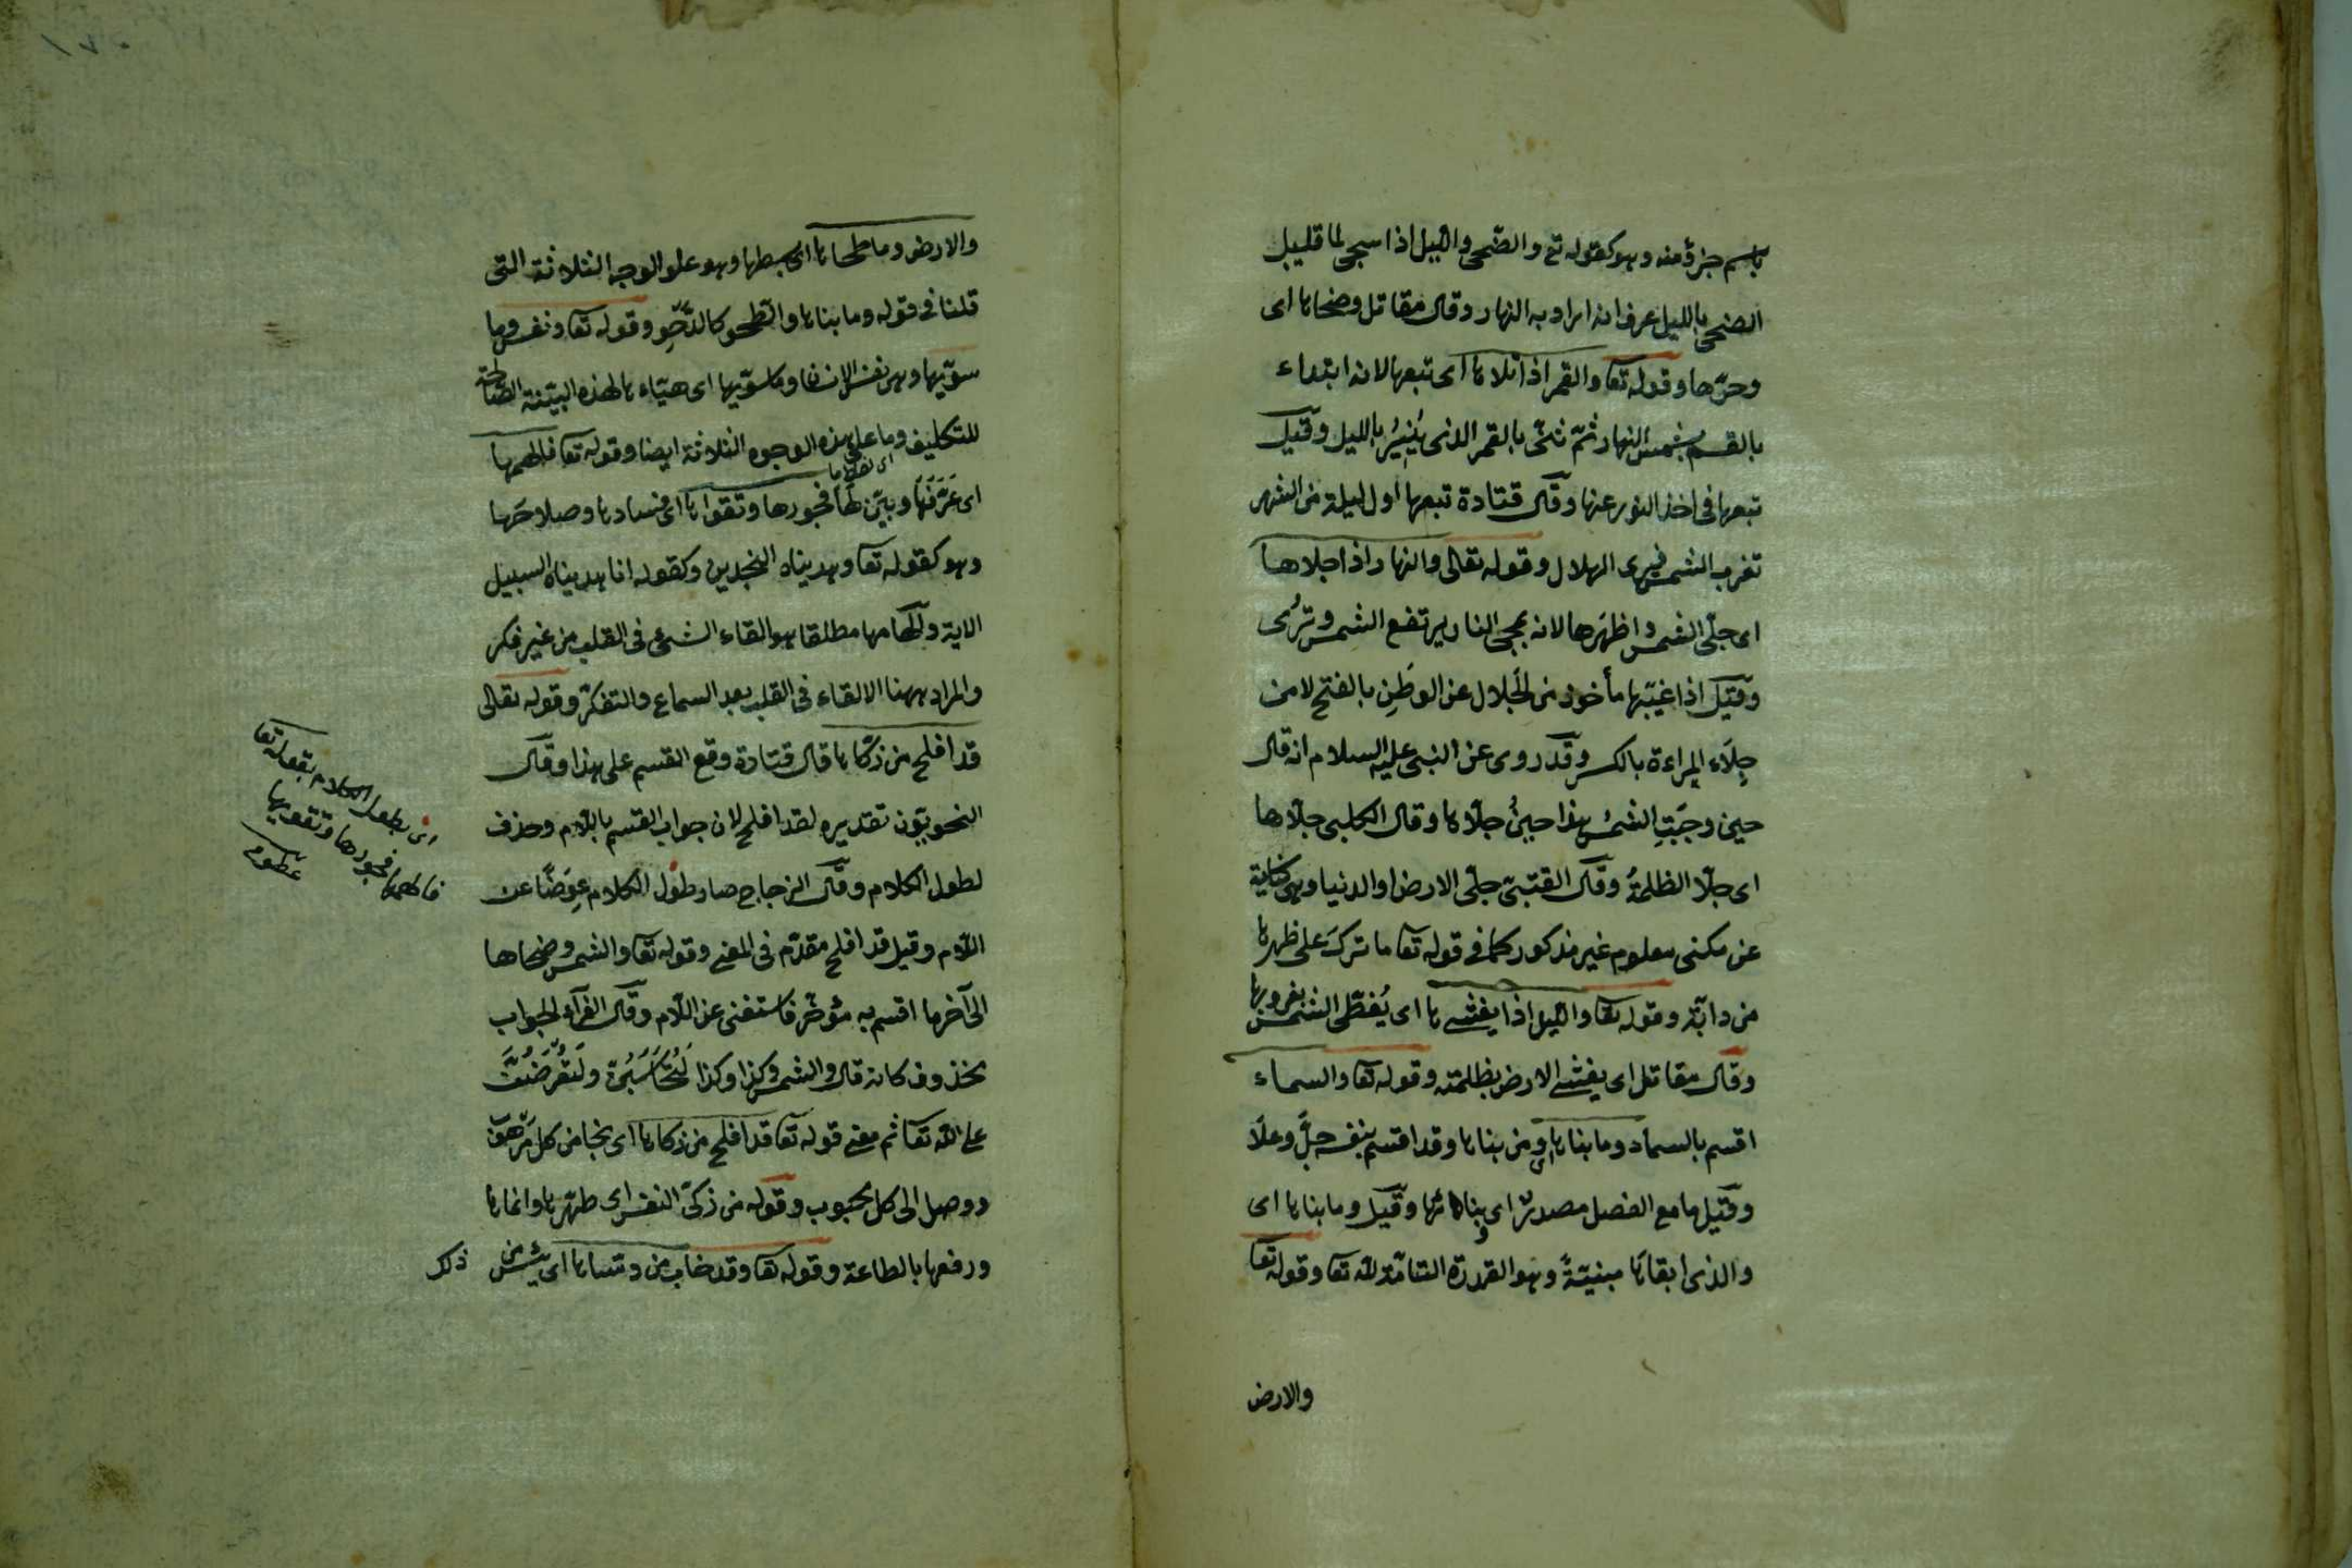 باسم جزؤ منه وهو كقوله تع والضحى والليل اذا سجى لما قليل
الضحى بالليل عرف انه اراد به النهار وقال مقاتل وضحاها اى
وحرّها وقوله تعا والقمر اذا تلاها اى تبعها لانه ابتداء
بالقسم بشمس النهار ثمّ ثنّى بالقمر الذى يُنيرُ بالليل وقيل
تبعها فى اخذ النور عنها وقال قتادة تبعها اول ليلة من الشهر
تغرب الشمس فيرى الهلال وقوله تعالى والنهار اذا جلاها
اى جلّى الشمس واظهَرها لانه بمجئ النار يرتفع الشمس وتُرى
وقيل اذا غيّبها مأخوذ من الجَلال عن الوطَنِ بالفتح لا من
جِلَاء المراءة بالكسر وقد روى عن النبى عليه السلام انه قال
حين وجبَتِ الشمسُ هذا حينُ جلّاها وقال الكلبى جلّاها
اى جلّا الظلمةُ وقال القتبىّ جلّى الارض او الدنيا وهى كناية
عن مكنى معلوم غير مذكور كما فى قوله تعا ما ترك على ظهرها
من دابّة وقوله تعا والليل اذا يغشيها اى يُغطّى الشمس بغروبها
وقال مقاتل اى يغشى الارض بظلمته وقوله تعا والسماء
اقسم بالسماء وما بناها اى ومن بناها وقد اقسم بنفسه جلَّ وعلَا
وقيل ما مع الفصل مصدرٌ اى وبنائها وقيل وما بناها اى
والذى ابقاها مبنيّةً وهو القدرة التامّة لله تعا وقوله تعا
والارض
والارض وما طحاها اى بسطها وهو على الوجه الثلاثة التى
قلنا فى قوله وما بناها والطحو كالدَّحْوِ وقوله تعا ونفس وما
سوّيها وهى نفس الانسان وما سوّيها اى هيّاءها لهذه البيّنة الصالحة
للتكليف وما على هذه الوجوه الثلاثة ايضا وقوله تعا فالهمها
اى عَرَّفَهَا وبيّن لها فجورها وتقواها اى فسادها وصلاحَها
وهو كقوله تعا وهديناه النجدين وكقوله انا هديناه السبيل
الاية والالهامها مطلقا هو القاء الشئ فى القلب من غير فكر
والمراد ههنا الالقاء فى القلب بعد السماع والتفكّر وقوله تعالى
قد افلح من زكّاها قال قتادة وقع القسم على هذا وقال
النحويّون تقديره لقد افلح لان جواب القسم باللام وحذف
لطول الكلام وقال الزجاج صار طول الكلام عِوَضًا عن
اللام وقيل قد افلح مقدّم فى المعنى وقوله تعا والشمس وضحاها
الى آخر ما اقسم به مؤخّر فاستغنى عن اللام وقال الفرّاء الجواب
محذوف كانه قال والشمس وكذا وكذا لَتُحَاسَبُنَّ ولَتُعْرَضُنَّ
على الله تعا ثم معنى قوله تعا قد افلح من زكاها اى نجا من كل مرهق
ووصل الى كل محبوب وقوله من زكىّ النفس اى طهّرها وانماها
ورفعها بالطاعة وقوله تعا وقد خاب من دسّاها اى يئس من
ذكر
اى بطول الكلام بقوله تعا
فالهمها فجورها وتقويها